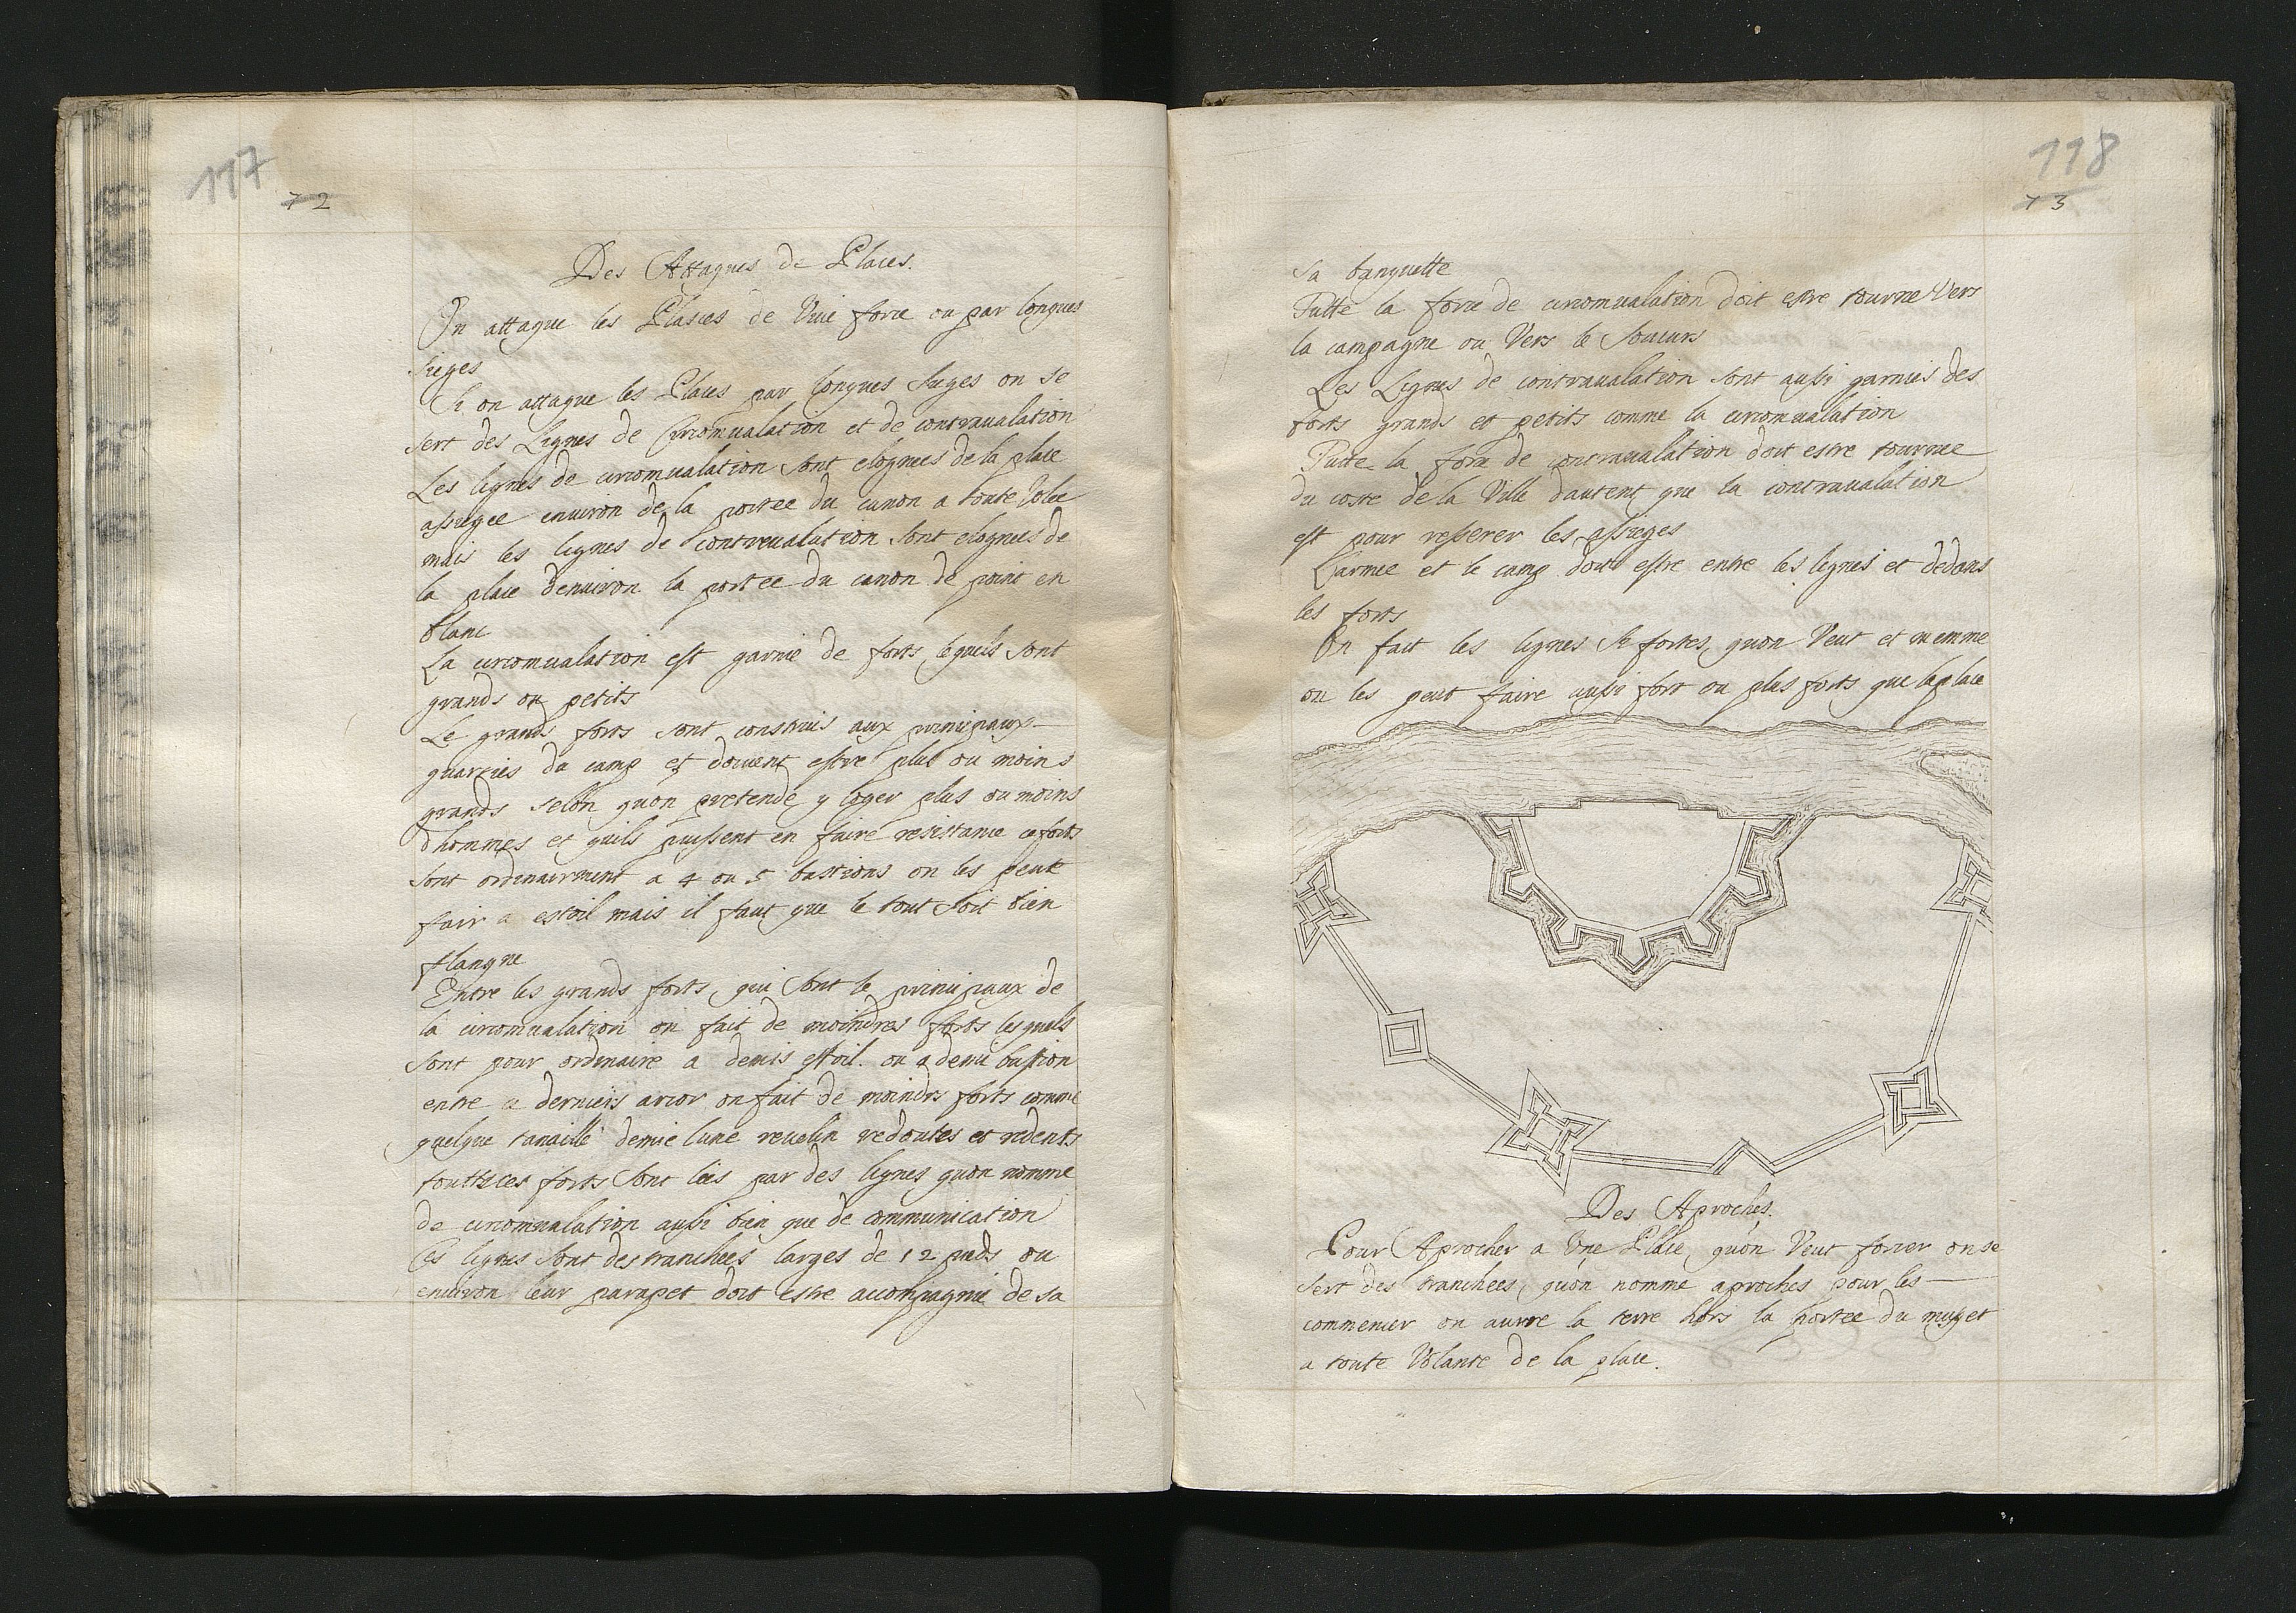 117
72
Des Attaques de Places.
On attaque les Plasces de Vive force ou par longues
sieges
Si on attaque les Places par longues sieges on se
sert des Lignes de Circomualation et de contraualation
Les lignes de circomualation sont elognees de la place
assiegee enuiron de la portee du canon a toute Volee
mais les lignes de contreualation sont elognees de
la place denuiron la portee du canon de point en
blanc
La circomualation est garnie de forts, lequels sont
grands ou petits
Le grands forts sont construis aux principaux
quarties du camp et doiuent estre plus ou moins
grands selon quon pretende y loger plus ou moins
dhommes et quils puissent en faire resistance ce forts
sont ordinairement a 4 ou 5 bastions on les peut
fair a estoil mais il faut que le tout soit bien
flanque
Entre les grands forts, qui sont le principaux de
la circomualation on fait de moindres forts lesquels
sont pour ordinaire a demis estoil. ou a demi bastion
entre ce derniers ancor on fait de moindrs forts comme
quelque tanaille demie lune reuelin redoutes et redents
touttes ces forts sont liés par des lignes quon nomme
de circomualation aussi bien que de communication
Ces lignes sont des tranchees larges de 12 pieds ou
enuiron leur parapet doit estre accompagnié de sa
118
73
sa banquette
Tutte la force de circomualation doit estre tournee Vers
la campagne ou Vers le secours
Les Lignes de contraualation sont aussi garnies des
forts grands et petits comme la circomualation
Tutte la force de contraualation doit estre tournee
du coste de la Ville dautent que la contraualation
est pour resserer les assieges
L'armee et le camp doit estre entre les lignes et dedans
les forts
On fait les lignes si fortes, quon Veut et memme
on les peut faire aussi fort ou plus forts que la place
Des Aproches.
Pour Aprocher a Vne Place, qu'on Veut forcer on se
sert des tranchees, qu'on nomme aproches pour les
commencer on auvre la terre hors la portee du musqet
a toute Volante de la place.